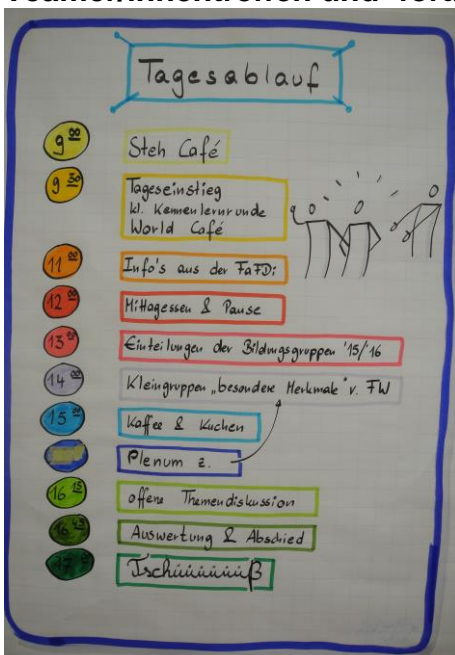 Tagesablauf
9 00 Steh Café
9 30 Tageseinstieg
kl. Kennenlernrunde
World Café
11 00 Info's aus der FaFDi
12 00 Mittagessen & Pause
13 Einteilungen der Bildungsgruppen '15/'16
14 00 Kleingruppen „besondere Merkmale" v. FW
15 00 Kaffee & Kuchen
Plenum z.
16 15 offene Themendiskussion
16 45 Auswertung & Abschied
17 Tschüüüüüüß